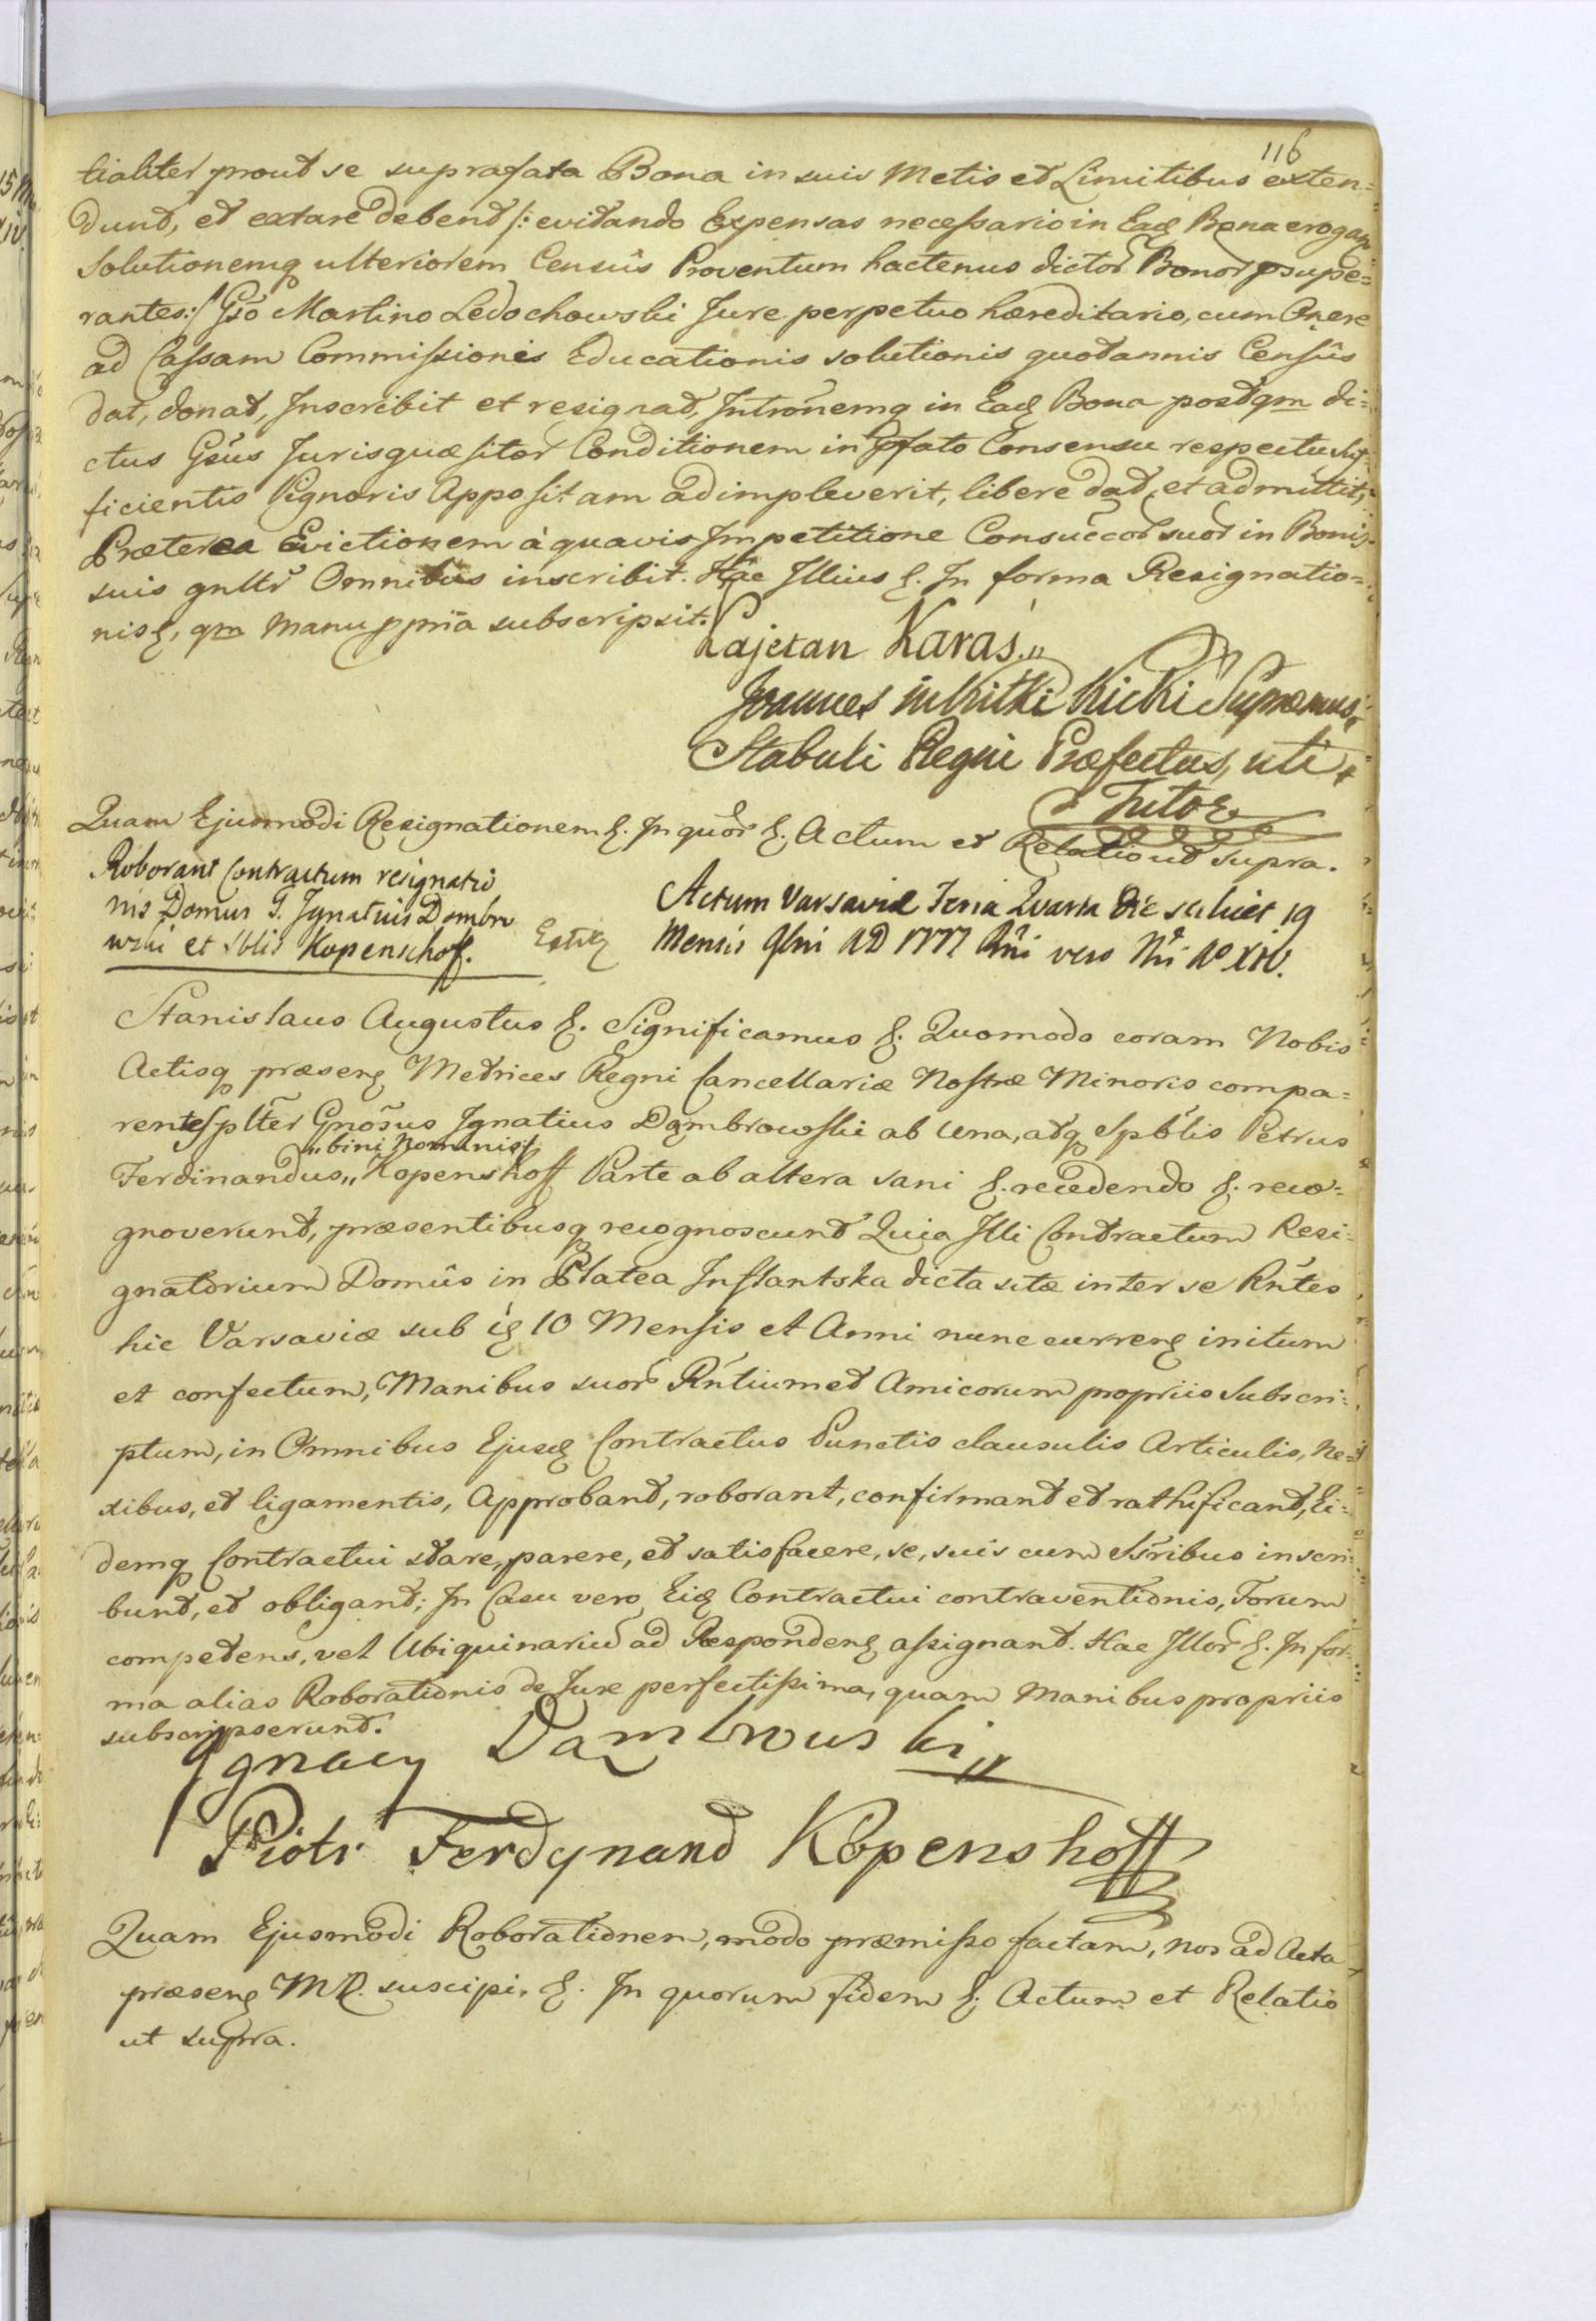 116
tialiter prout se suprafata Bona in suis Metis et Limitibus exten=
dunt, et extare debent /: evitando Expensas necessario in Eaq Bona erogan
Solutionemq ulteriorem Censûs Proventum hactenus dictor Bonor supe=
rantes:/ Gso Martino Ledochowski Jure perpetuo hæreditario, cum Onere
ad Cassam Commissionis Educationis solutionis quotannis Censûs
dat, donat, Inscribit et resignat, Intronemq in Eaq Bona postqm di=
ctus Gsus Jurisquæsitor Conditionem in pfato Consensu respectu Suf
ficientis Pignoris Appositam adimpleverit, libere dat, et admittit,
Præterea Evictionem à quavis Impetitione Consuccor suor in Bonis
suis gnltr Omnibus inscribit. Hac Illius &. In forma Resignatio=
nis &, qm Manu ppria subscripsit.
Cajetan Karas.,,
Joannes in Kitki Kicki Supremus
Stabuli Regni Præfectus, uti
Tutor
Quam Ejusmodi Resignationem &. In quor &. Actum et Relatio ut supra.
Roborant Contractum resignatio
nis Domus G. Ignatius Dombro
wski et Sblis Kopenschof.
Extr
Actum Varsaviæ Feria Quarta Die scilicet 19
Mensis 9bri AD 1777 Rni vero Nri Ao XIV.
Stanislaus Augustus &. Significamus &. Quomodo coram Nobis
Actisq præsen Metrices Regni Cancellariæ Nostræ Minoris compa=
rentes plter Gnosus Ignatius Dąmbrowski ab una, atq Spblis Petrus
,,bini Nominis
Ferdinandus,, Kopenshoff Parte ab altera sani &. recedendo &. reco=
gnoverunt, præsentibusq recognoscunt Quia Illi Contractum Resi=
gnatorium Domûs in Platea Inflantska dicta sitæ inter se Rntes
hic Varsaviæ sub 10 Mensis et Anni nunc curren initum
et confectum, Manibus suor Rntium et Amicorum propriis Subscri=
ptum, in Omnibus Ejusd Contractus Punctis clausulis Articulis, Ne=
xibus, et ligamentis, Approbant, roborant, confirmant et rathificant, Ei=
demq Contractui stare, parere, et satisfacere, se, suis cum Ssribus inscri=
bunt, et obligant; In Casu vero Eid Contractui contraventionis, Forum
competens, vel Ubiquinariu ad Responden assignant. Hac Illor &. In for=
ma alias Roborationis de Jure perfectissima, quam Manibus propriis
subscripserunt.
Ignacy Dąmbrowski
Piotr Ferdynand Kopenshoff
Quam Ejusmodi Roborationem, modo præmisso factam, nos ad Acta
præsen MR. suscipi. &. In quorum fidem &. Actum et Relatio
ut supra.